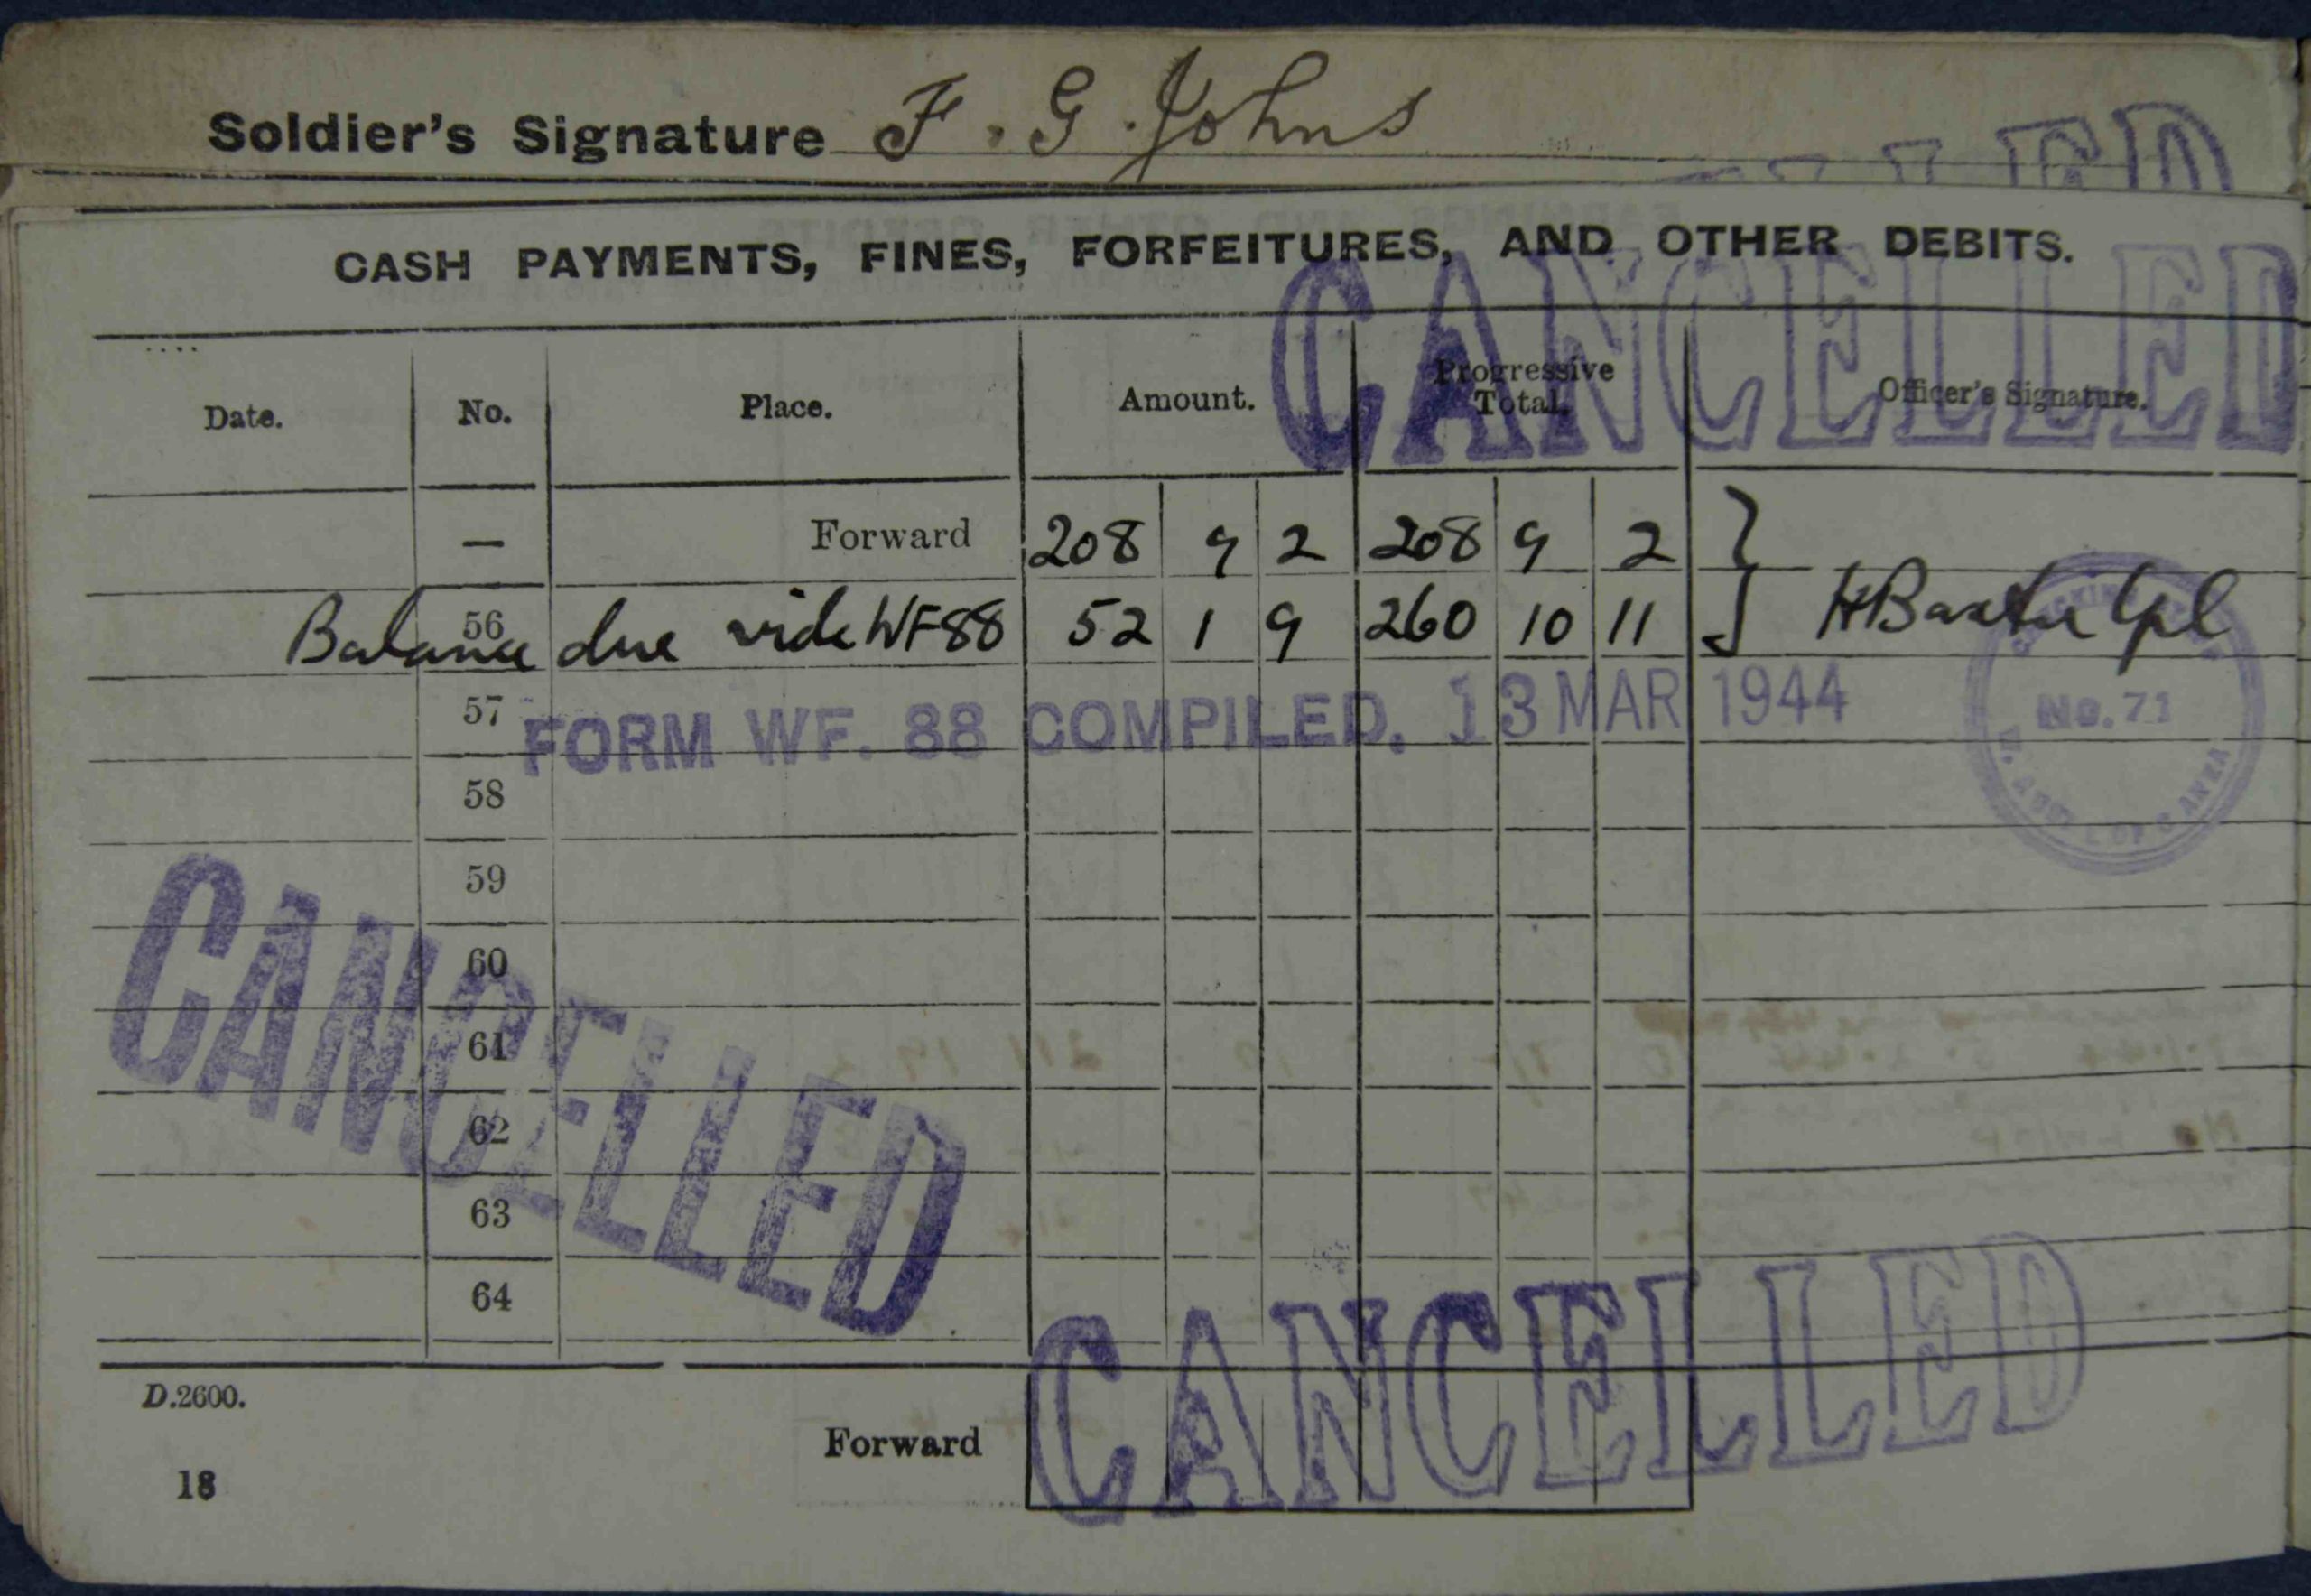 Soldier's Signature F. G. Johns
CASH PAYMENTS, FINES, FORFEITURES, AND OTHER DEBITS.
CANCELLED
Date. No. Place. Amount. Progressive Total. Officer's Signature.
— Forward 208 9 2 208 9 2
56 Balance due vide WF88 52 1 9 260 10 11 H Baxter Cpl
57
FORM WF. 88 COMPILED. 13 MAR 1944
No. 71
58
59
60
61
62
63
64
CANCELLED
CANCELLED
D.2600.
Forward
18